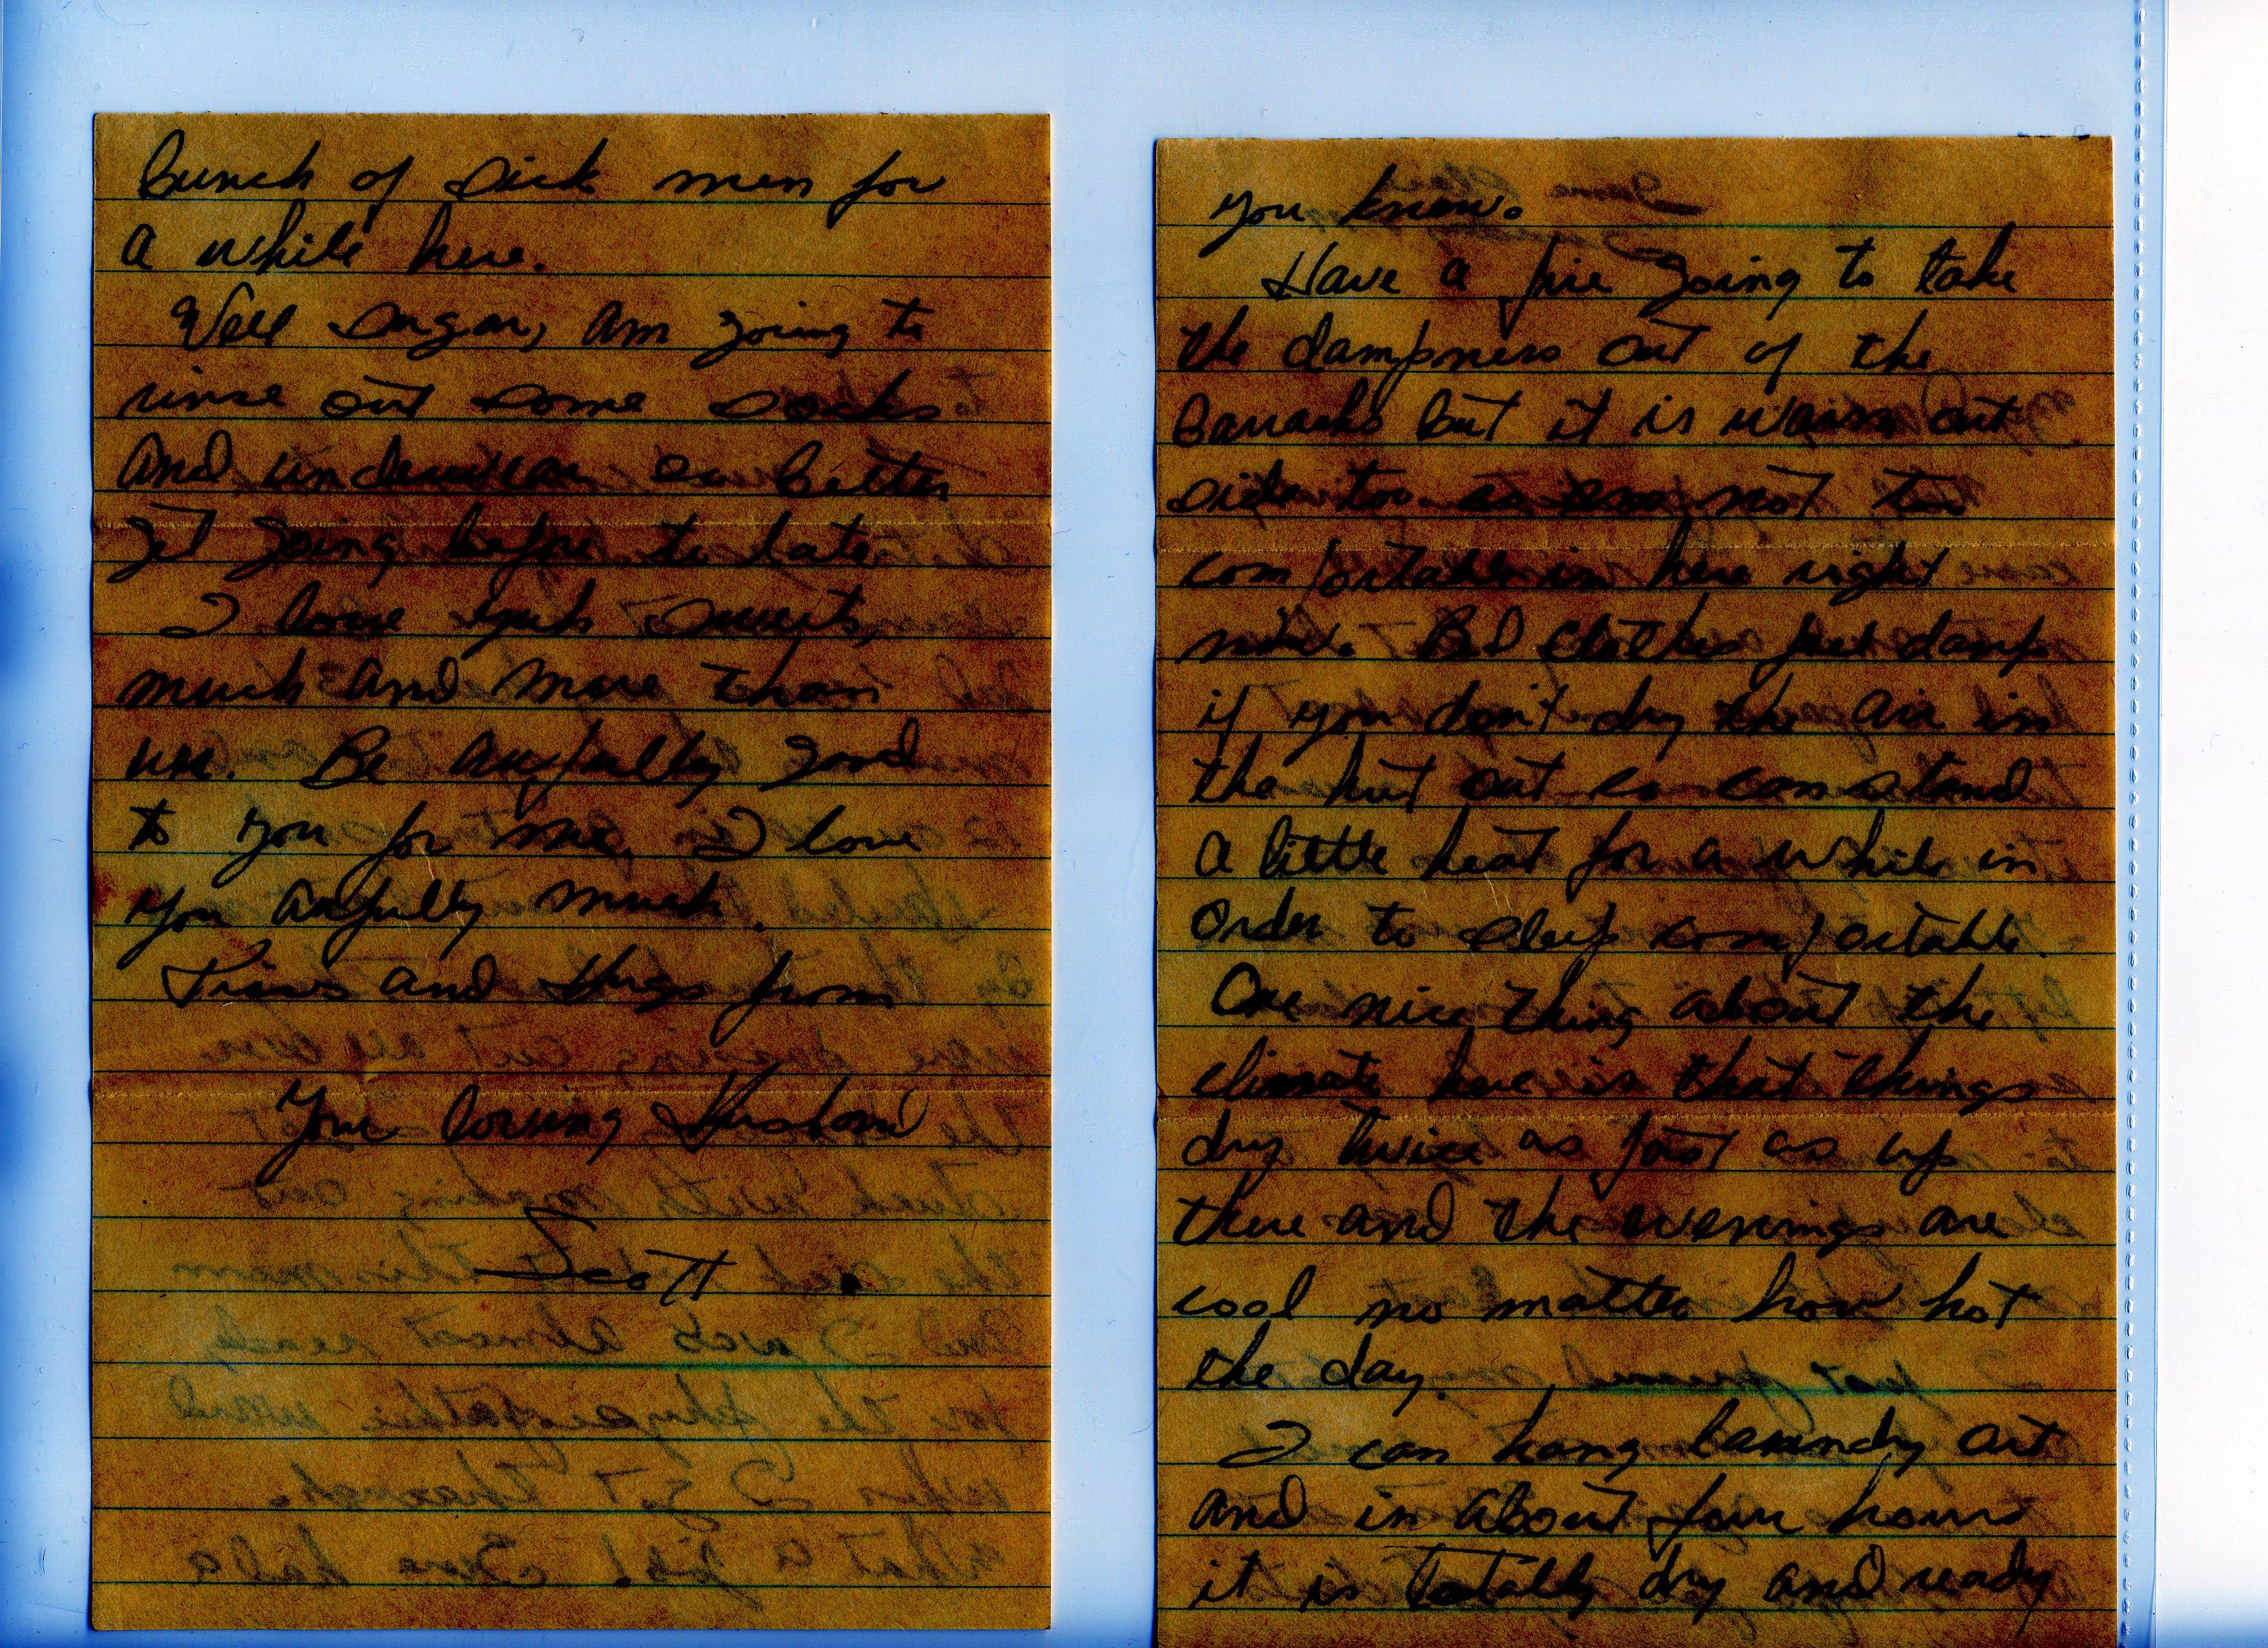 bunch of sick men for
a while here.
Well Sugar, am going to
rinse out some socks
and underwear so better
get going before to late.
I love yuh Sweets,
much and more than
un. Be awfully good
to you for me, I love
you awfully much.
Kisses and Hugs from
Your loving Husband
Scott.
you know.
Have a fire going to take
the dampness out of the
barracks but it is warm out
side too so am not too
comfortable in here right
now. Bed clothes feel damp
if you don't dry the air in
the hut out so can stand
a little heat for a while in
order to sleep comfortable.
One nice thing about the
climate here is that things
dry twice as fast as up
there and the evenings are
cool no matter how hot
the day.
I can hang laundry out
and in about four hours
it is totally dry and ready